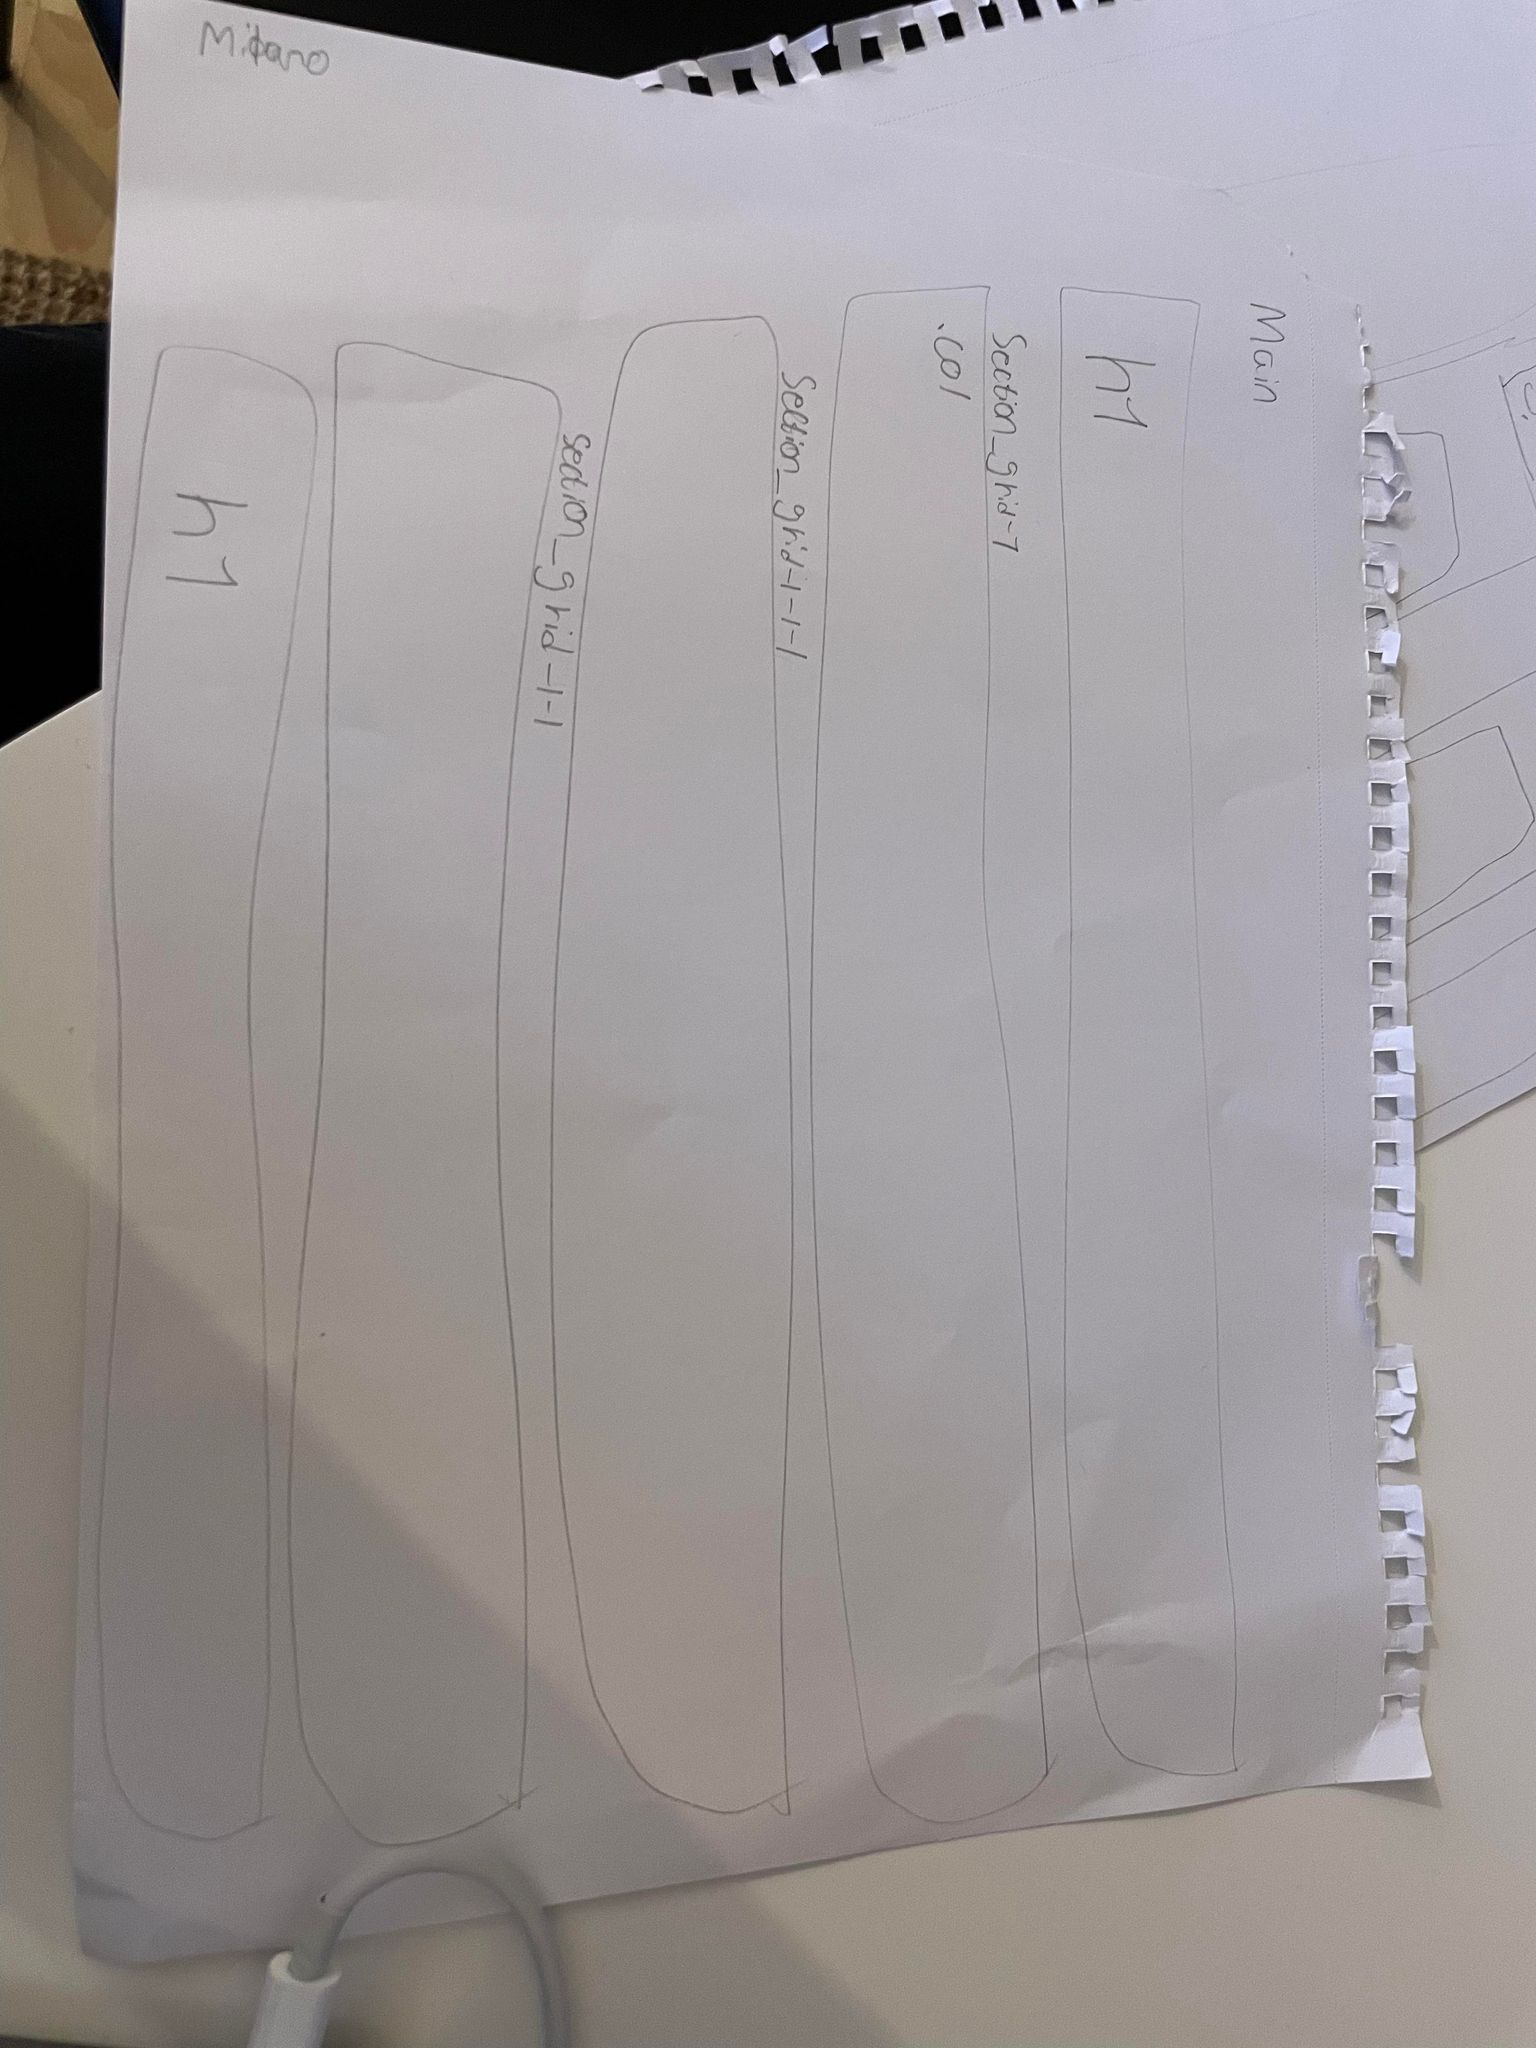 Main
h1
Section_grid-1
.col
Section_grid-1-1-1
section_grid-1-1
h1